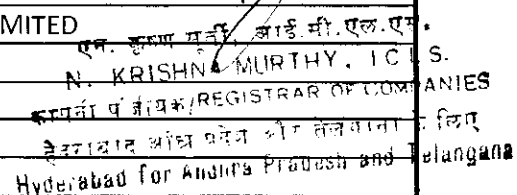 MITED
एन. कृष्ण मूर्ती, आई.सी.एल.एस.
N. KRISHNA MURTHY, I C L S.
कम्पनी पंजीयक/REGISTRAR OF COMPANIES
हैदराबाद आंध्र प्रदेश और तेलंगाना के लिए
Hyderabad for Andhra Pradesh and Telangana